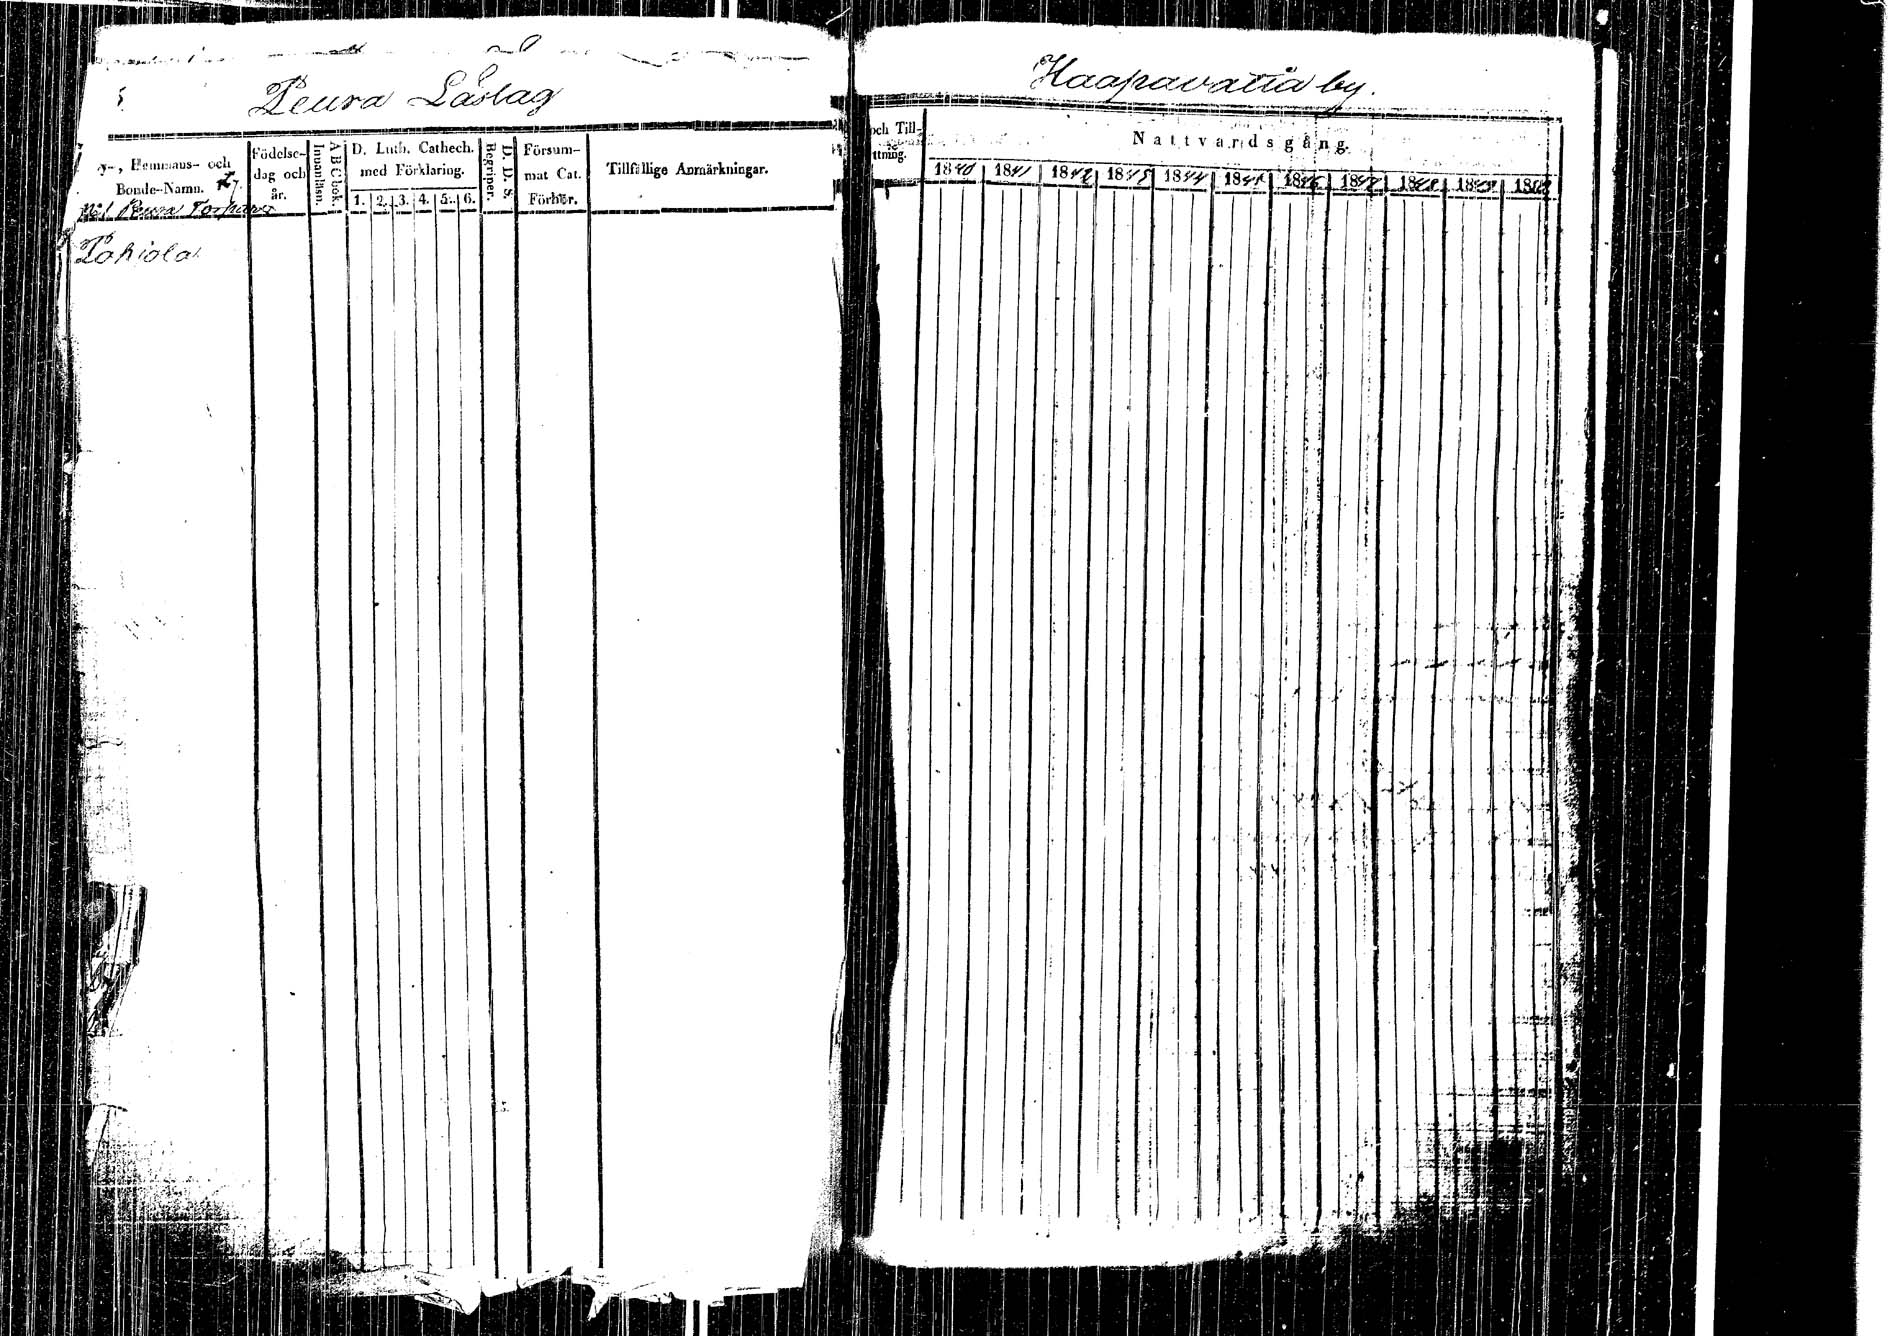 Peura Låslag
y-, Hemmans- och
Bonde-Namn.
Födelse-
dag och
år.
A B C bok.
Innanläsn.
D. Luth. Cathech.
med Förklaring.
1. 2. 3. 4. 5. 6.
Begriper.
D. D. S.
Försum-
mat Cat.
Förhör.
Tillfällige Anmärkningar.
No 1 Peura Torpare
Pohiola
Haapavatia by.
och Till-
ttning.
Nattvardsgång.
1840 1841 1842 1843 1844 1845 1846 1847 1848 1849